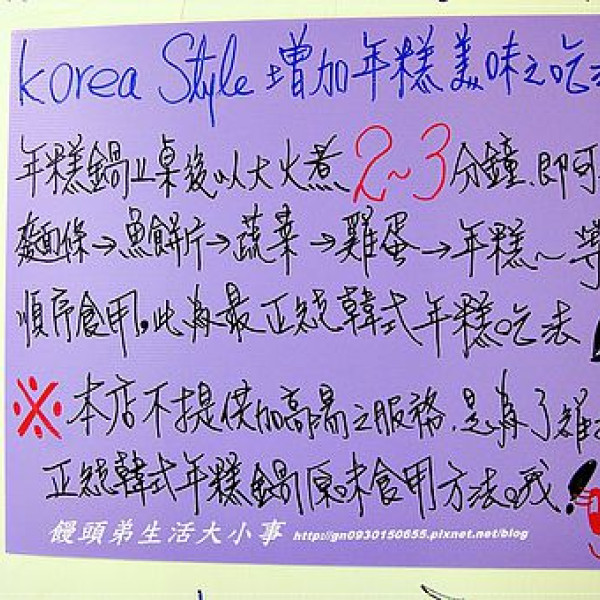 Korea Style 增加年糕美味之吃法
年糕鍋上桌後以大火煮2~3分鐘.即可
麵條→魚餅片→蔬菜→雞蛋→年糕~等
順序食用,此為最正統韓式年糕吃法
※.本店不提供加高湯之服務.是為了維
正統韓式年糕鍋原味食用方法。哦!
饅頭弟生活大小事 http://gn0930150655.pixnet.net/blog